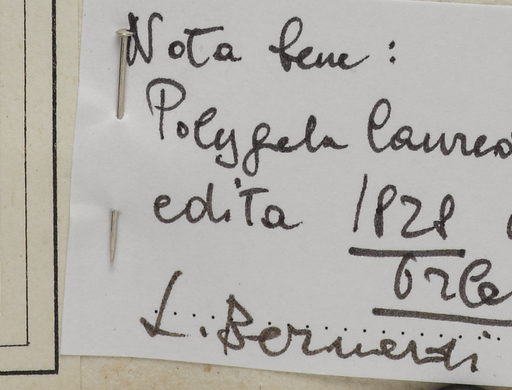 Nota bene :
Polygala laureo
edita 1828
Orle
L. Bernardi